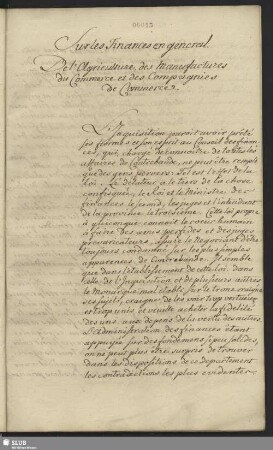 00013
Sur les Finances en general.
De l'Agriculture, des Manufactures
du Commerce et des Compagnies
de Commerce.
L'Inquisition paroit avoir prêté
ses formes et son esprit au Conseil des finan-
ces, qui, chargé de connoitre de toutes les
affaires de Contrebande, ne peut être rempli
que des gens pervers: Tel est l'esprit de la
loi. Le délateur a le tiers de la chose
confisquée, le Roi et le Ministre des
finances le second, les juges et l'intendant
de la province le troisième. Cette loi propre
à quiconque connoit le coeur humain
à faire des amis perfides et des juges
prévaricateurs, expose le Négociant d'être
toujours condamné sur les plus simples
apparences de Contrebande. Il semble
que dans l'établissement de cette loi, dans
celle de l'Inquisition et de plusieurs autres
le Monarque mal établi sur le trone craigne
ses sujets, craigne de les voir trop vertueux
et trop unis et veuille acheter la fidelité
des uns aux dépens de la vertu des autres.
L'Administration des finances étant
appuyée sur des fondemens si peu solides,
on ne peut plus être surpris de trouver
dans les dispositions de ce département
les contradictions les plus evidentes
SLUB